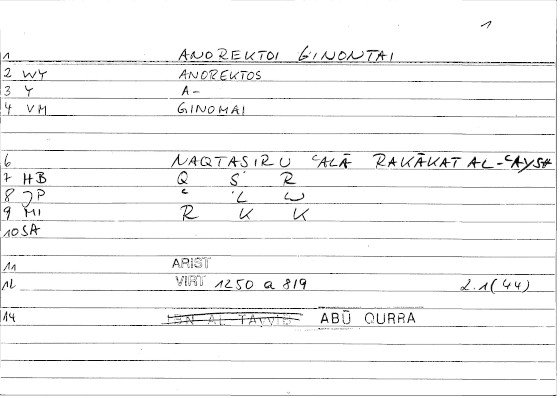 1
1 ANOREKTOI GINONTAI
2 WY ANOREKTOS
3 Y A-
4 VM GINOMAI
6 NAQTASIRU ʿALĀ RAKĀKAT AL-ʿAYSH
7 HB Q S R
8 JP ʿ L W
9 MI R K K
10 SA
11 ARIST
12 VIRT 1250 a 819 2.1(44)
14 IBN AL TAYYIB ABŪ QURRA